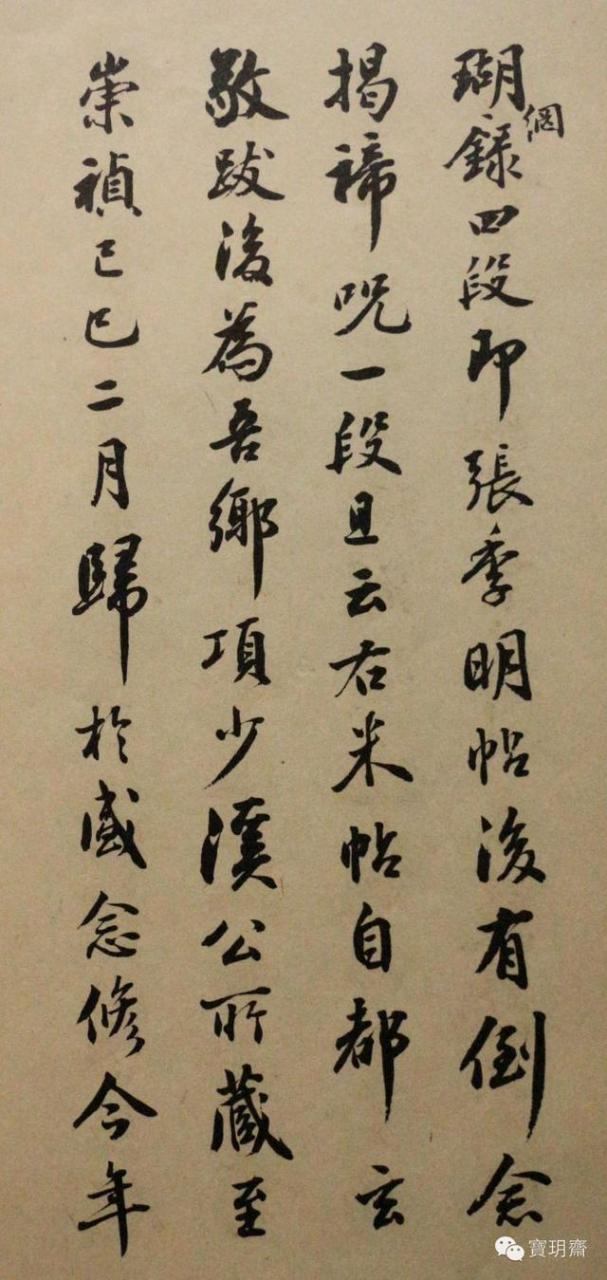 瑚網錄四段即張季明帖後有倒念
揭諦呪一段且云右米帖自都玄
敬跋後為吾鄉項少溪公所藏至
崇禎己巳二月歸於盛念修今年
寶玥齋